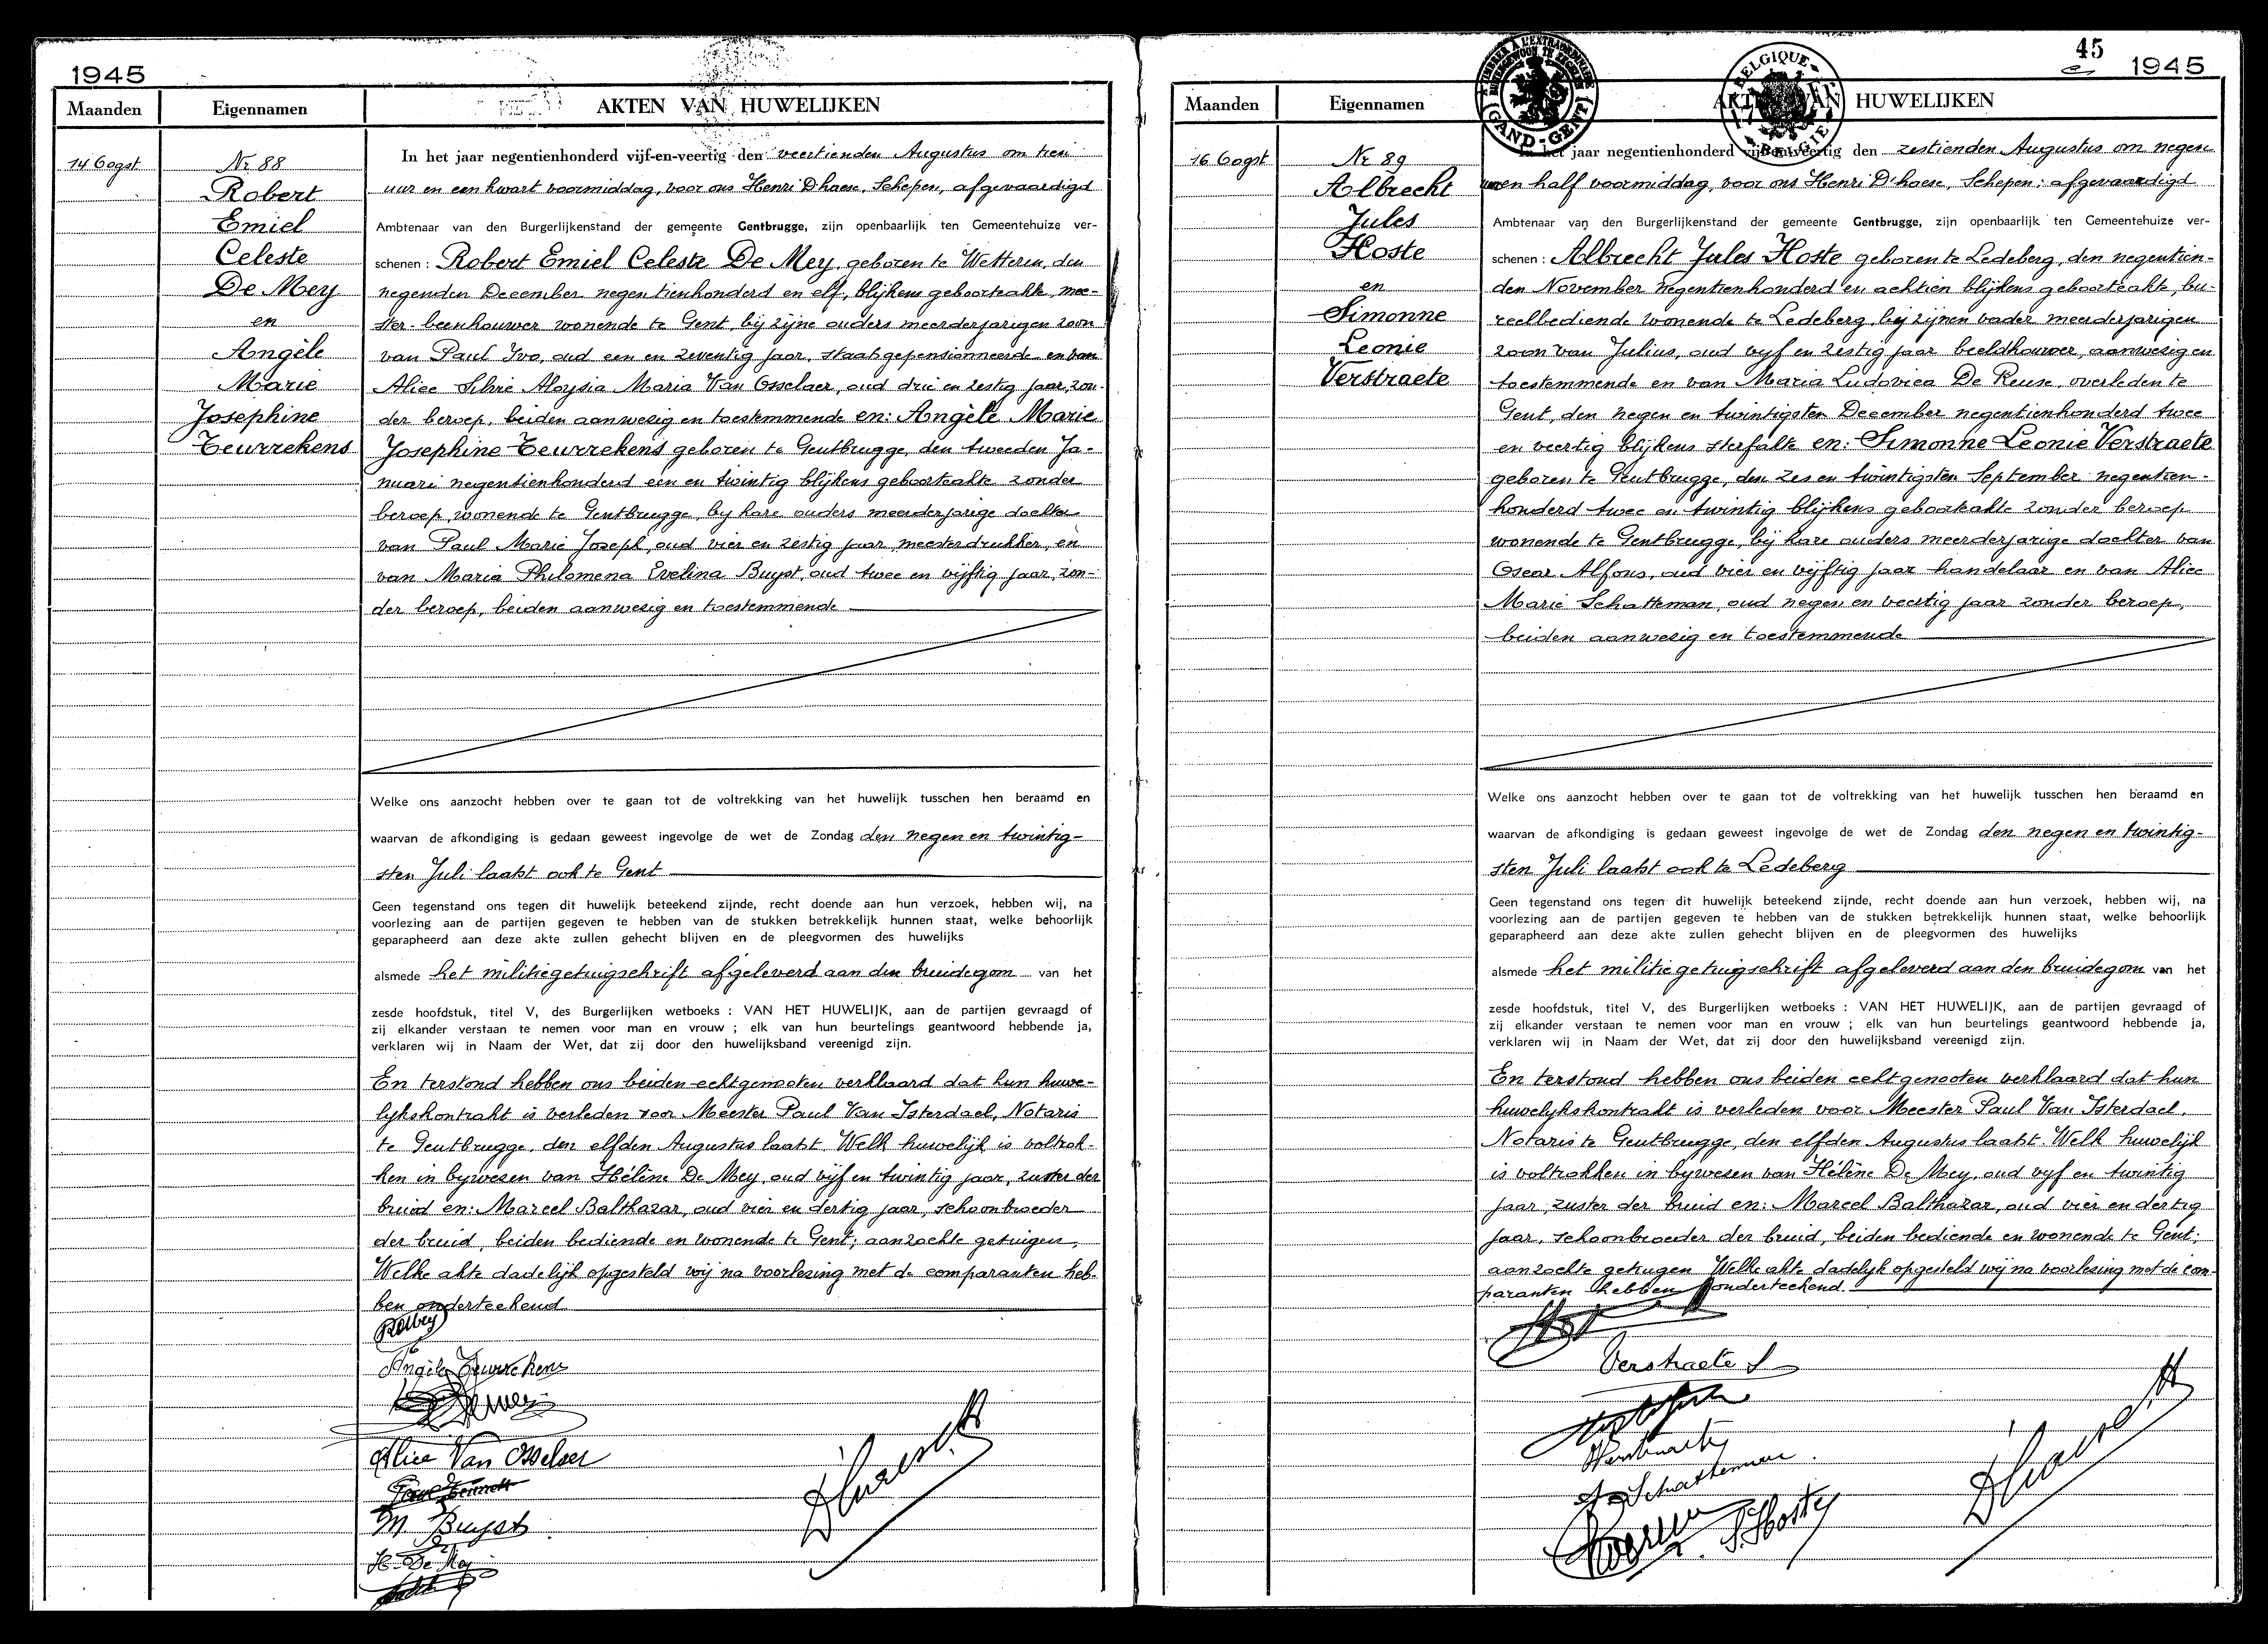 1945
Maanden
Eigennamen
AKTEN VAN HUWELIJKEN
14 Oogst
Nr 88
Robert
Emiel
Celeste
De Mey
en
Angèle
Marie
Josephine
Teurrekens
In het jaar negentienhonderd vijf-en-veertig den veertienden Augustus om tien
uur en een kwart voormiddag, voor ons Henri D'haese, Schepen, afgevaardigd
Ambtenaar van den Burgerlijkenstand der gemeente Gentbrugge, zijn openbaarlijk ten Gemeentehuize ver-
schenen : Robert Emiel Celeste De Mey, geboren te Wetteren, den
negenden December negentienhonderd en elf, blijkens geboorteakte, mee-
ster-beenhouwer wonende te Gent, bij zijne ouders meerderjarigen zoon
van Paul Ivo, oud een en zeventig jaar, staatsgepensionneerde en van
Alice Silvie Aloysia Maria Van Osselaer, oud drie en zestig jaar, zon-
der beroep, beiden aanwezig en toestemmende en: Angèle Marie
Josephine Teurrekens geboren te Gentbrugge, den tweeden Ja-
nuari negentienhonderd een en twintig blijkens geboorteakte zonder
beroep, wonende te Gentbrugge, bij hare ouders meerderjarige dochter
van Paul Marie Joseph, oud vier en zestig jaar, meesterdrukker, en
van Maria Philomena Evelina Buyst, oud twee en vijftig jaar, zon-
der beroep, beiden aanwezig en toestemmende
Welke ons aanzocht hebben over te gaan tot de voltrekking van het huwelijk tusschen hen beraamd en
waarvan de afkondiging is gedaan geweest ingevolge de wet de Zondag den negen en twintig-
sten Juli laatst ook te Gent
Geen tegenstand ons tegen dit huwelijk beteekend zijnde, recht doende aan hun verzoek, hebben wij, na
voorlezing aan de partijen gegeven te hebben van de stukken betrekkelijk hunnen staat, welke behoorlijk
geparapheerd aan deze akte zullen gehecht blijven en de pleegvormen des huwelijks
alsmede het militiegetuigschrift afgeleverd aan den bruidegom van het
zesde hoofdstuk, titel V, des Burgerlijken wetboeks : VAN HET HUWELIJK, aan de partijen gevraagd of
zij elkander verstaan te nemen voor man en vrouw ; elk van hun beurtelings geantwoord hebbende ja,
verklaren wij in Naam der Wet, dat zij door den huwelijksband vereenigd zijn.
En terstond hebben ons beiden echtgenooten verklaard dat hun huwe-
lijkskontrakt is verleden voor Meester Paul Van Isterdael, Notaris
te Gentbrugge, den elfden Augustus laatst. Welk huwelijk is voltrok-
ken in bijwesen van Hélène De Mey, oud vijf en twintig jaar, zuster der
bruid en: Marcel Balthazar, oud vier en dertig jaar, schoonbroeder
der bruid, beiden bediende en wonende te Gent; aanzochte getuigen,
Welke akte dadelijk opgesteld wij na voorlezing met de comparanten heb-
ben onderteekend
Angèle Teurrekens
Alice Van Osselaer
M Buyst
H. De Mey
D'haese H
45
1945
TIMBRE A L'EXTRAORDINAIRE
(GAND-GENT)
BELGIQUE
BELGIE
Maanden
Eigennamen
AKTEN VAN HUWELIJKEN
16 Oogst
Nr 89
Albrecht
Jules
Hoste
en
Simonne
Leonie
Verstraete
In het jaar negentienhonderd vijf-en-veertig den zestienden Augustus om negen
uren half voormiddag, voor ons Henri D'haese, Schepen: afgevaardigd
Ambtenaar van den Burgerlijkenstand der gemeente Gentbrugge, zijn openbaarlijk ten Gemeentehuize ver-
schenen : Albrecht Jules Hoste geboren te Ledeberg, den negentien-
den November negentienhonderd en achtien blijkens geboorteakte, bu-
reelbediende wonende te Ledeberg, bij zijnen vader meerderjarigen
zoon van Julius, oud vijf en zestig jaar beeldhouwer, aanwesig en
toestemmende en van Maria Ludovica De Reuse, overleden te
Gent, den negen en twintigsten December negentienhonderd twee
en veertig blijkens sterfakte en: Simonne Leonie Verstraete
geboren te Gentbrugge, den zes en twintigsten September negentien-
honderd twee en twintig blijkens geboorteakte zonder beroep
wonende te Gentbrugge, bij hare ouders meerderjarige dochter van
Oscar Alfons, oud vier en vijftig jaar handelaar en van Alice
Marie Schatteman, oud negen en veertig jaar zonder beroep,
beiden aanwesig en toestemmende
Welke ons aanzocht hebben over te gaan tot de voltrekking van het huwelijk tusschen hen beraamd en
waarvan de afkondiging is gedaan geweest ingevolge de wet de Zondag den negen en twintig-
sten Juli laatst ook te Ledeberg
Geen tegenstand ons tegen dit huwelijk beteekend zijnde, recht doende aan hun verzoek, hebben wij, na
voorlezing aan de partijen gegeven te hebben van de stukken betrekkelijk hunnen staat, welke behoorlijk
geparapheerd aan deze akte zullen gehecht blijven en de pleegvormen des huwelijks
alsmede het militiegetuigschrift afgeleverd aan den bruidegom van het
zesde hoofdstuk, titel V, des Burgerlijken wetboeks : VAN HET HUWELIJK, aan de partijen gevraagd of
zij elkander verstaan te nemen voor man en vrouw ; elk van hun beurtelings geantwoord hebbende ja,
verklaren wij in Naam der Wet, dat zij door den huwelijksband vereenigd zijn.
En terstond hebben ons beiden echtgenooten verklaard dat hun
huwelijkskontrakt is verleden voor Meester Paul Van Isterdael,
Notaris te Gentbrugge, den elfden Augustus laatst. Welk huwelijk
is voltrokken in bijwesen van Hélène De Mey, oud vijf en twintig
jaar, zuster der bruid en: Marcel Balthazar, oud vier en dertig
jaar, schoonbroeder der bruid, beiden bediende en wonende te Gent;
aanzochte getuigen Welke akte dadelijk opgesteld wij na voorlezing met de com-
paranten hebben onderteekend.
Verstraete S
Schatteman
D'haese H